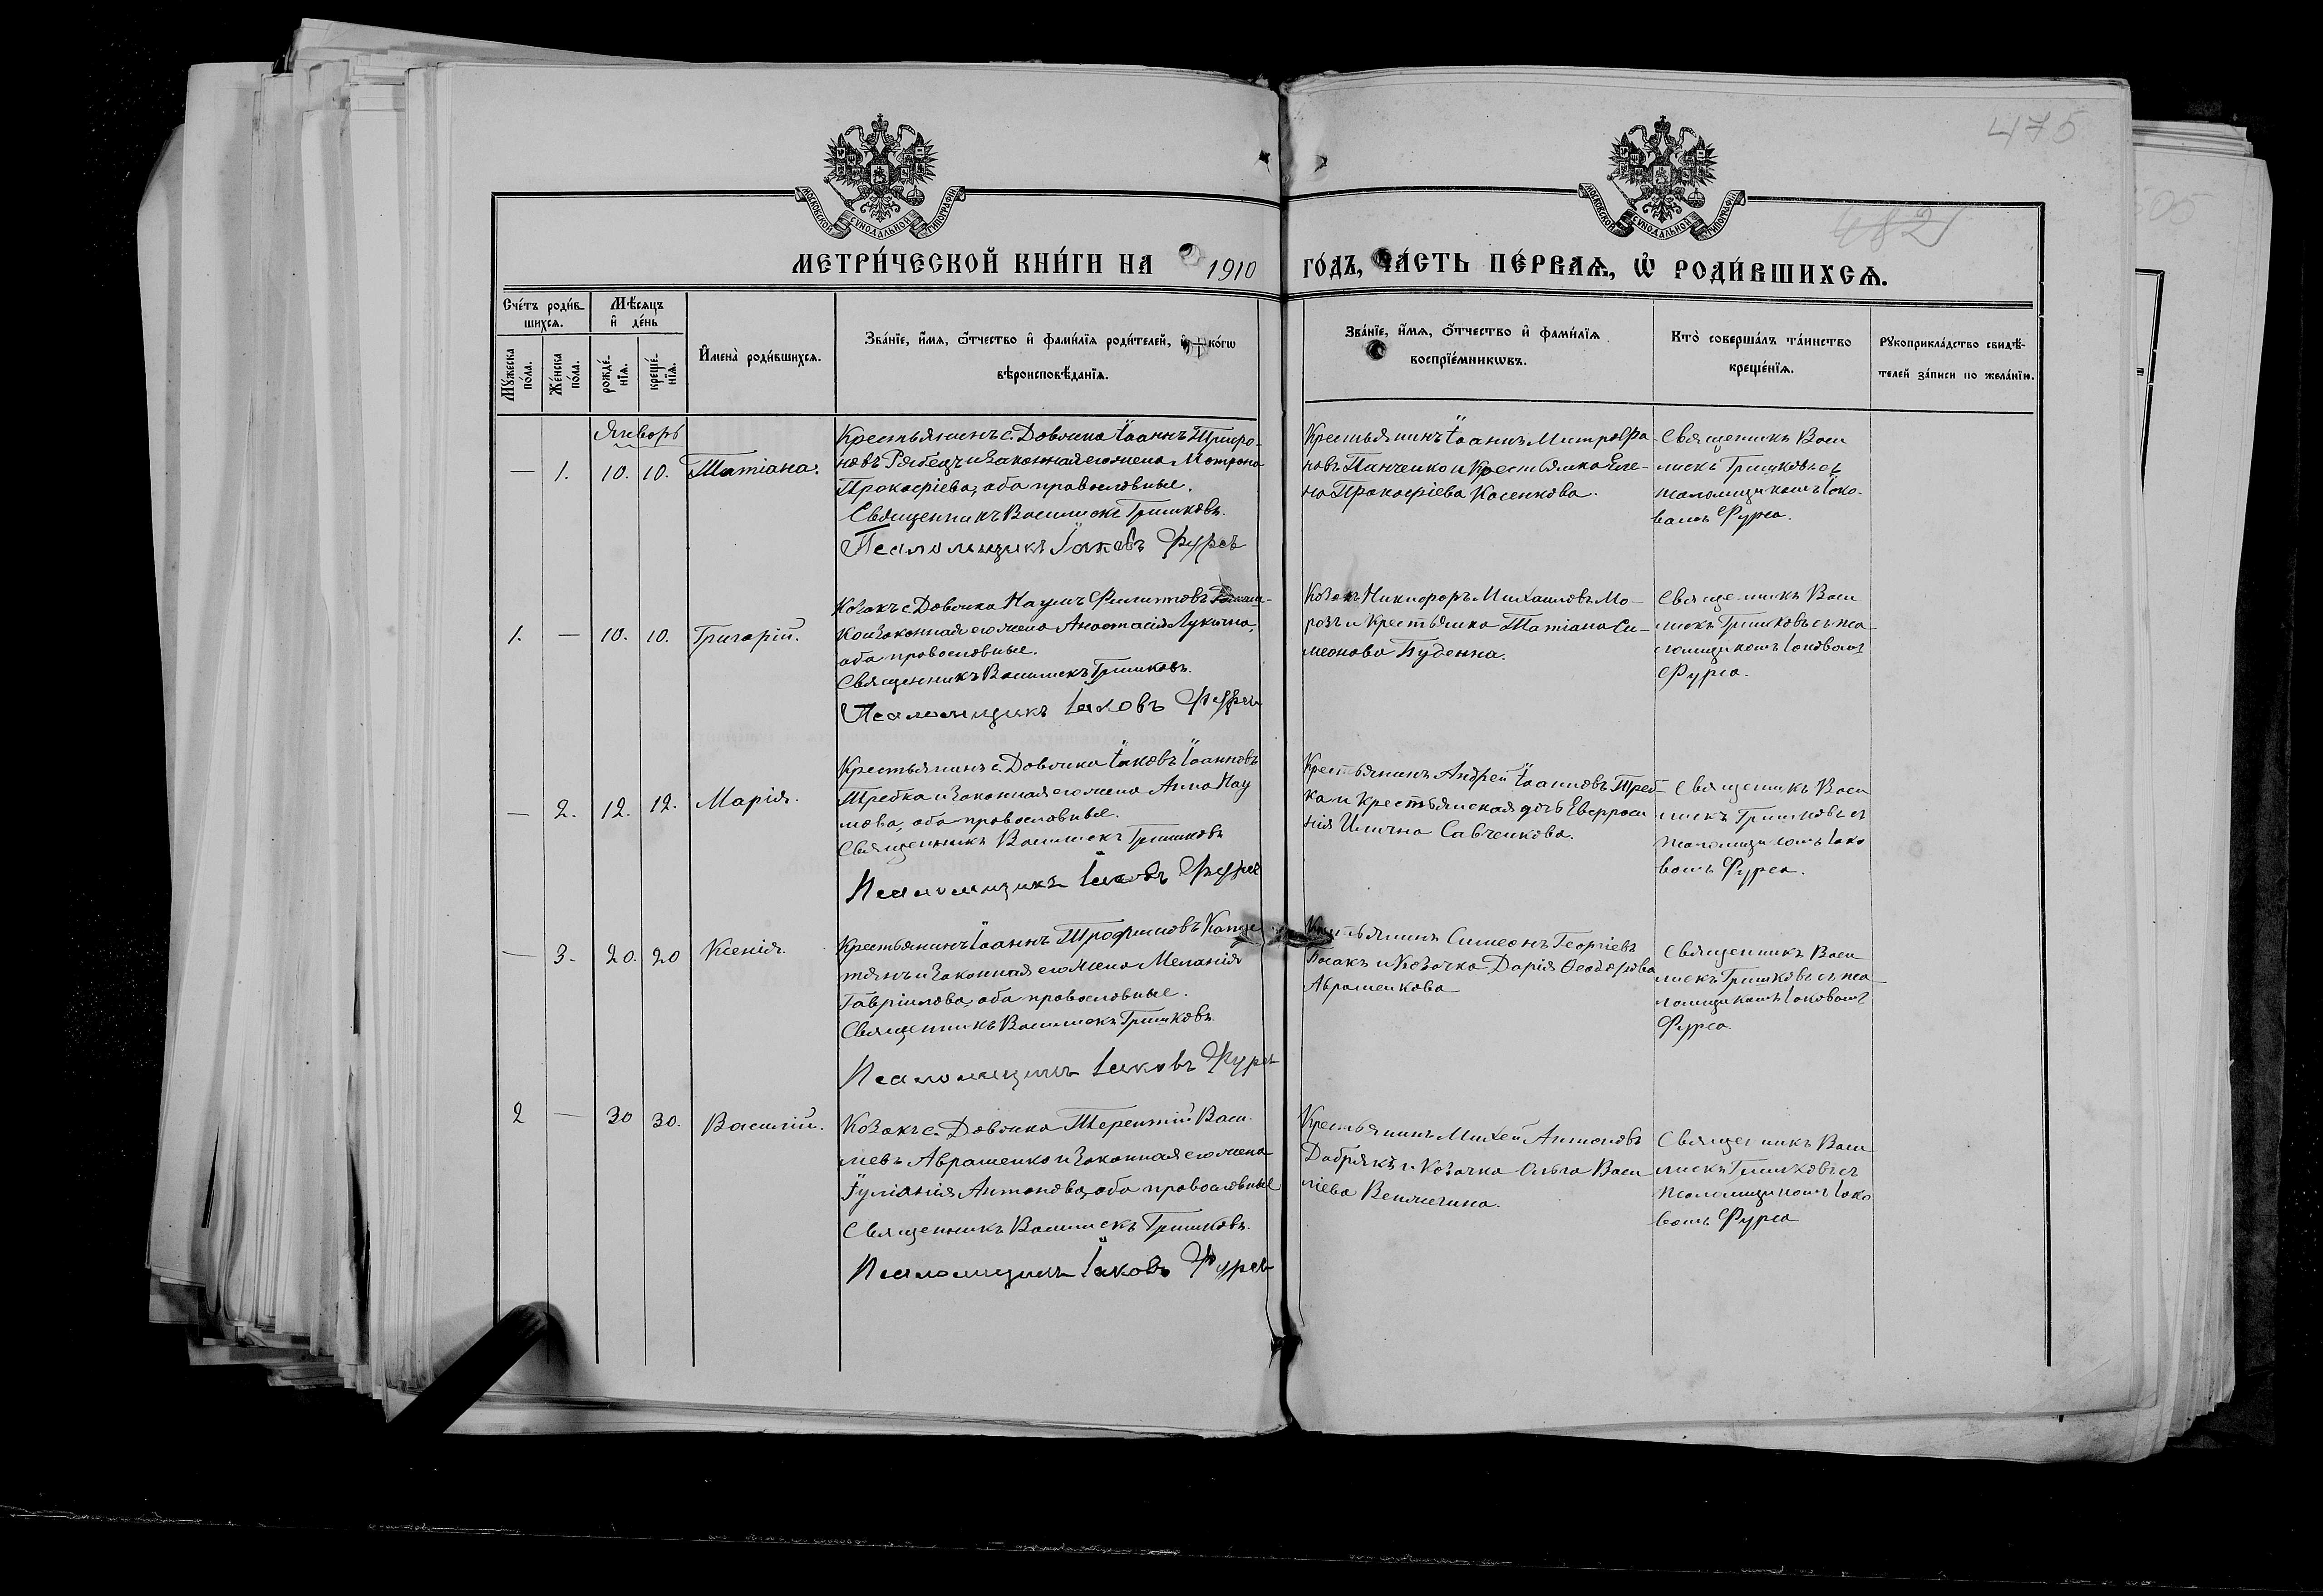 475
482
МОСКОВСКОЙ СѴНОДАЛЬНОЙ ТИПОГРАФІИ
МОСКОВСКОЙ СѴНОДАЛЬНОЙ ТИПОГРАФІИ
МЕТРИ́ЧЕСКОЙ КНИ́ГИ НА 1910 ГО́ДЪ, ЧА́СТЬ ПЕ́РВАѦ, Ѡ҆ РОДИ́ВШИХСѦ.
Сче́тъ роди́в-
шихсѧ.
Мѣ́сѧцъ
и҆ де́нь
Мꙋ́жеска
по́ла.
Же́нска
по́ла.
рожде́-
нїѧ.
креще́-
нїѧ.
И҆мена̀ роди́вшихсѧ.
Зва́нїе, и҆́мѧ, ѻ҆́тчество и҆ фами́лїѧ роди́телей, и҆ ко́гѡ
вѣроисповѣ́данїѧ.
Зва́нїе, и҆́мѧ, ѻ҆́тчество и҆ фами́лїѧ
воспрїе́мникѡвъ.
Кто̀ соверша́лъ та́инство
креще́нїѧ.
Рꙋкоприкла́дство свидѣ́-
телей за́писи по жела́нїю.
Январь
— 1. 10. 10. Татіана.
Крестьянинъ с. Довжика Іоаннъ Трифо-
новъ Рябецъ и законная его жена Матрона
Прокофіева, оба православные.
Священникъ Василискъ Гришковъ.
Псаломщикъ Іаковъ Фурса
Крестьянинъ Іоаннъ Митрофа-
новъ Панченко и Крестьянка Еле-
на Прокофіева Касенкова.
Священникъ Васи
лискъ Гришковъ съ
псаломщикомъ Іако-
вомъ Фурса.
1. — 10. 10. Григорій.
Козакъ с. Довжика Наумъ Филиповъ
ко и законная его жена Анастасія Лукична,
оба православные.
Священникъ Василискъ Гришковъ.
Псаломщикъ Іаковъ Фурса
Козакъ Никифоръ Михаиловъ Мо-
розъ и Крестьянка Татіана Си-
меонова Буденна.
Священникъ Васи
лискъ Гришковъ съ пса
ломщикомъ Іаковомъ
Фурса.
— 2. 12. 12. Марія.
Крестьянинъ с. Довжика Іаковъ Іоанновъ
Требка и законная его жена Анна Нау
мова, оба православные.
Священникъ Василискъ Гришковъ
Псаломщикъ Іаковъ Фурса
Крестьянинъ Андрей Іоанновъ Треб-
ка и крестьянская дочь Евфроси
нія Ильична Савченкова.
Священникъ Васи
лискъ Гришковъ съ
псаломщикомъ Іако
вомъ Фурса.
— 3. 20. 20 Ксенія.
Крестьянинъ Іоаннъ Трофимовъ
и законная его жена Меланія
Гавріилова, оба православные.
Священникъ Василискъ Гришковъ.
Псаломщикъ Іаковъ Фурса
Крестьянинъ Симеонъ Георгіевъ
и Козачка Дарія Ѳеодорова
Аврашенкова
Священникъ Васи
лискъ Гришковъ съ пса
ломщикомъ Іаковомъ
Фурса.
2 — 30 30. Василій.
Козакъ с. Довжика Терентій Васи-
льевъ Аврашенко и законная его жена
Іуліанія Антонова, оба православные
Священникъ Василискъ Гришковъ.
Псаломщикъ Іаковъ Фурса
Крестьянинъ Михей Антоновъ
Добрякъ и Козачка Ольга Васи
ліева
Священникъ Васи
лискъ Гришковъ съ
псаломщикомъ Іако
вомъ Фурса